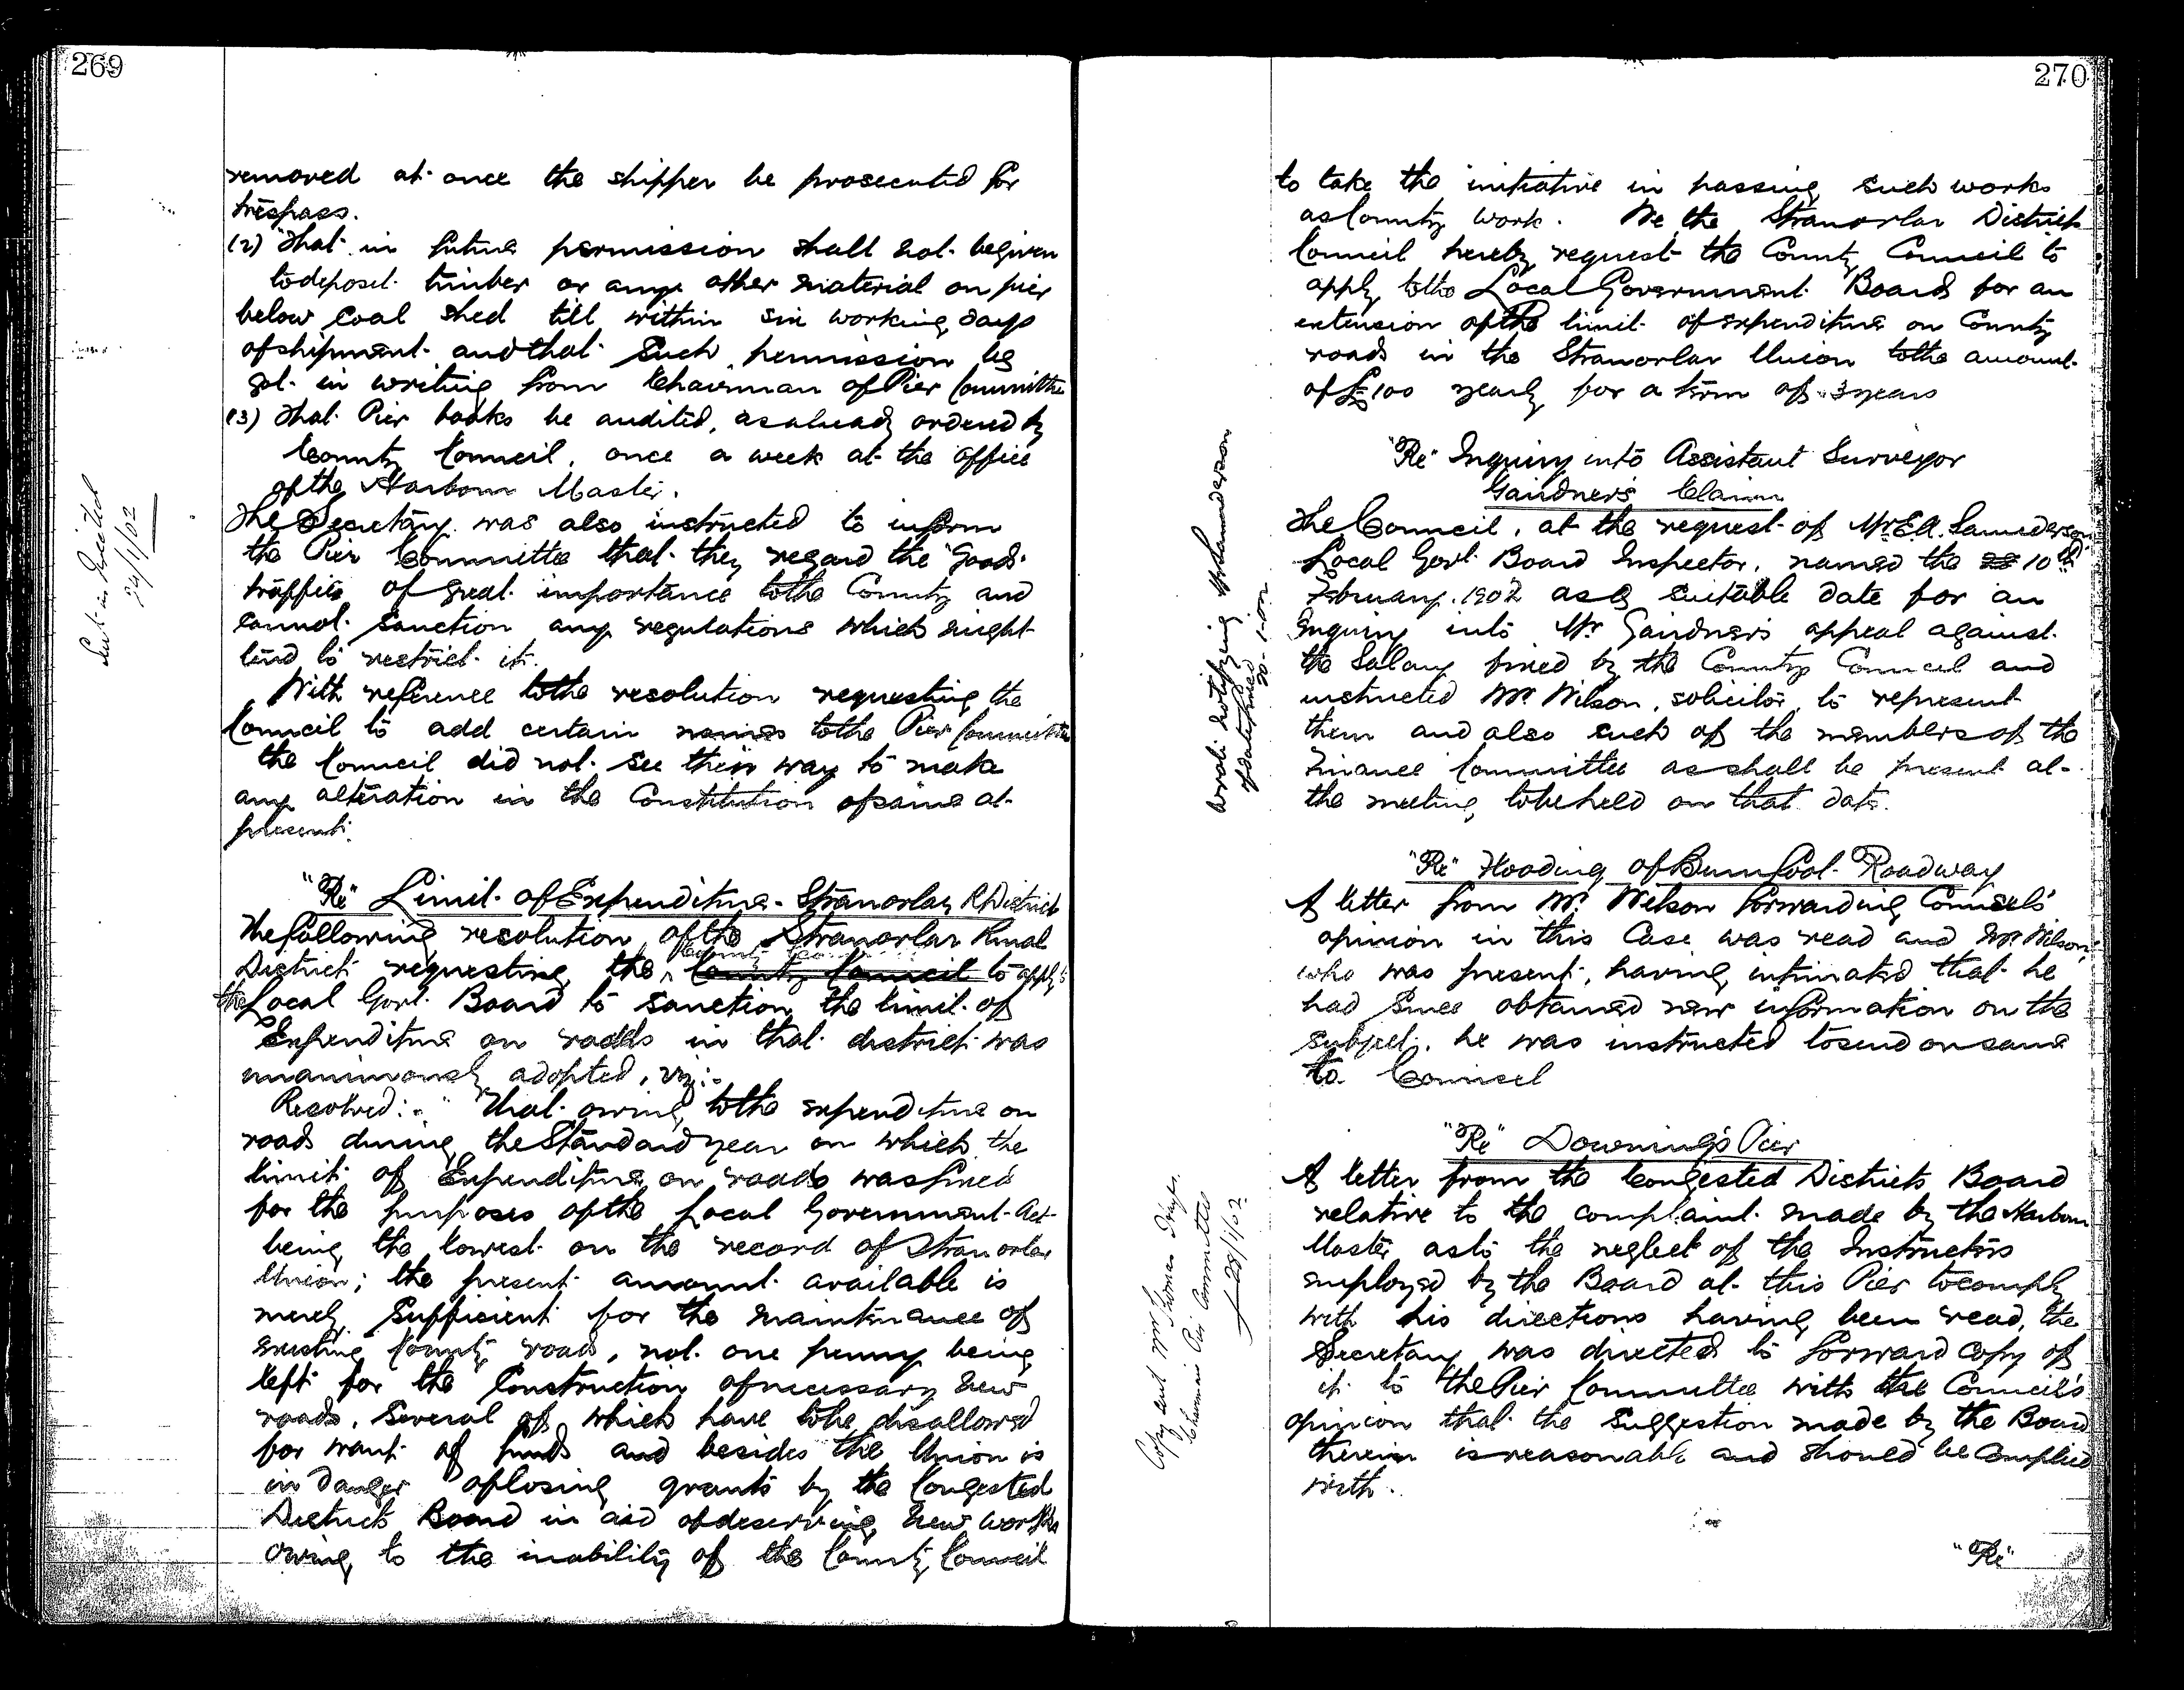 269
removed at once the shipper be prosecuted for
trespass.
(2) That in future permission shall not be given
to deposit timber or any other material on pier
below Coal shed till within six working days
of shipment and that such permission be
got in writing from Chairman of Pier Committee
(3) That Pier books be audited, as already ordered by
County Council, once a week at the office
of the Harbour Master.
The Secretary was also instructed to inform
the Pier Committee that they regard the Goods
traffic of great importance to the County and
cannot sanction any regulations which might
tend to restrict it.
With reference to the resolution requesting the
Council to add certain names to the Pier Committee
the Council did not see their way to make
any alteration in the Constitution of same at
present.
"Re" Limit of Expenditure - Stranorlar R District
The following resolution of the Stranorlar Rural
District requesting the County Council to apply to
the Local Govt. Board to sanction the limit of
Expenditure on roads in that district was
unanimously adopted, viz:-
Resolved:- "That owing to the expenditure on
roads during the Standard year on which the
limit of Expenditure on roads was fixed
for the purposes of the Local Government Act
being the lowest on the record of Stranorlar
Union; the present amount available is
merely sufficient for the maintenance of
existing County roads, not one penny being
left for the Construction of necessary new
roads, several of which have to be disallowed
for want of funds and besides the Union is
in danger of losing grants by the Congested
Districts Board in aid of deserving new works
owing to the inability of the County Council
24/1/02
270
to take the initiative in passing such works
as County work. We the Stranorlar District
Council hereby request the County Council to
apply to the Local Government Board for an
extension of the limit of expenditure on County
roads in the Stranorlar Union to the amount
of £100 yearly for a term of 3 years
"Re" Inquiry into Assistant Surveyor
Gardner's Claim
The Council, at the request of Mr. E.A. Saunderson
Local Govt. Board Inspector, named the 10th
February 1902 as a suitable date for an
Inquiry into Mr Gardner's appeal against
the Salary fixed by the County Council and
instructed Mr. Wilson, solicitor, to represent
them and also such of the members of the
Finance Committee as shall be present at
the meeting to be held on that date.
"Re" Flooding of Burnfoot Roadway
A letter from Mr. Wilson forwarding Counsel's
opinion in this Case was read and Mr. Wilson,
who was present, having intimated that he
had since obtained new information on the
subject, he was instructed to send on same
to Counsel
"Re" Downing's Pier
A letter from the Congested Districts Board
relative to the complaint made by the Harbour
Master as to the neglect of the Instructors
employed by the Board at this Pier to comply
with his directions having been read, the
Secretary was directed to forward copy of
it to the Pier Committee with the Council's
opinion that the suggestion made by the Board
therein is reasonable and should be Complied
with.
"Re"
notifying Mr Saunderson
of date fixed
Copy sent Mr
Chairman Pier Committee
28/1/02